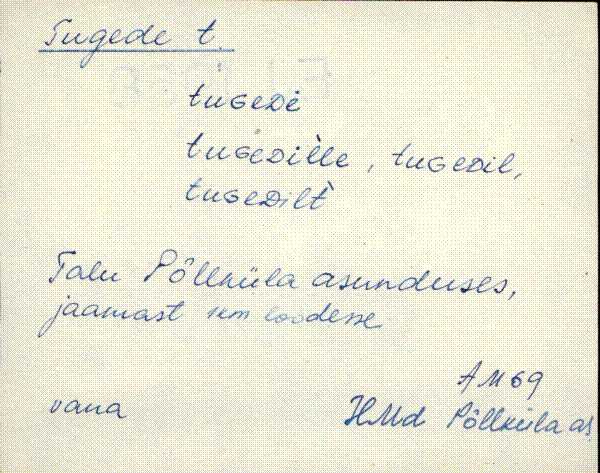 Tugede t.
tuGEDE
tuGEDElle, tuGEDEl,
tuGEDElt
Talu Põllküla asunduses,
jaamast 1 km loodesse
AM 69
vana
HMd Põllküla as.